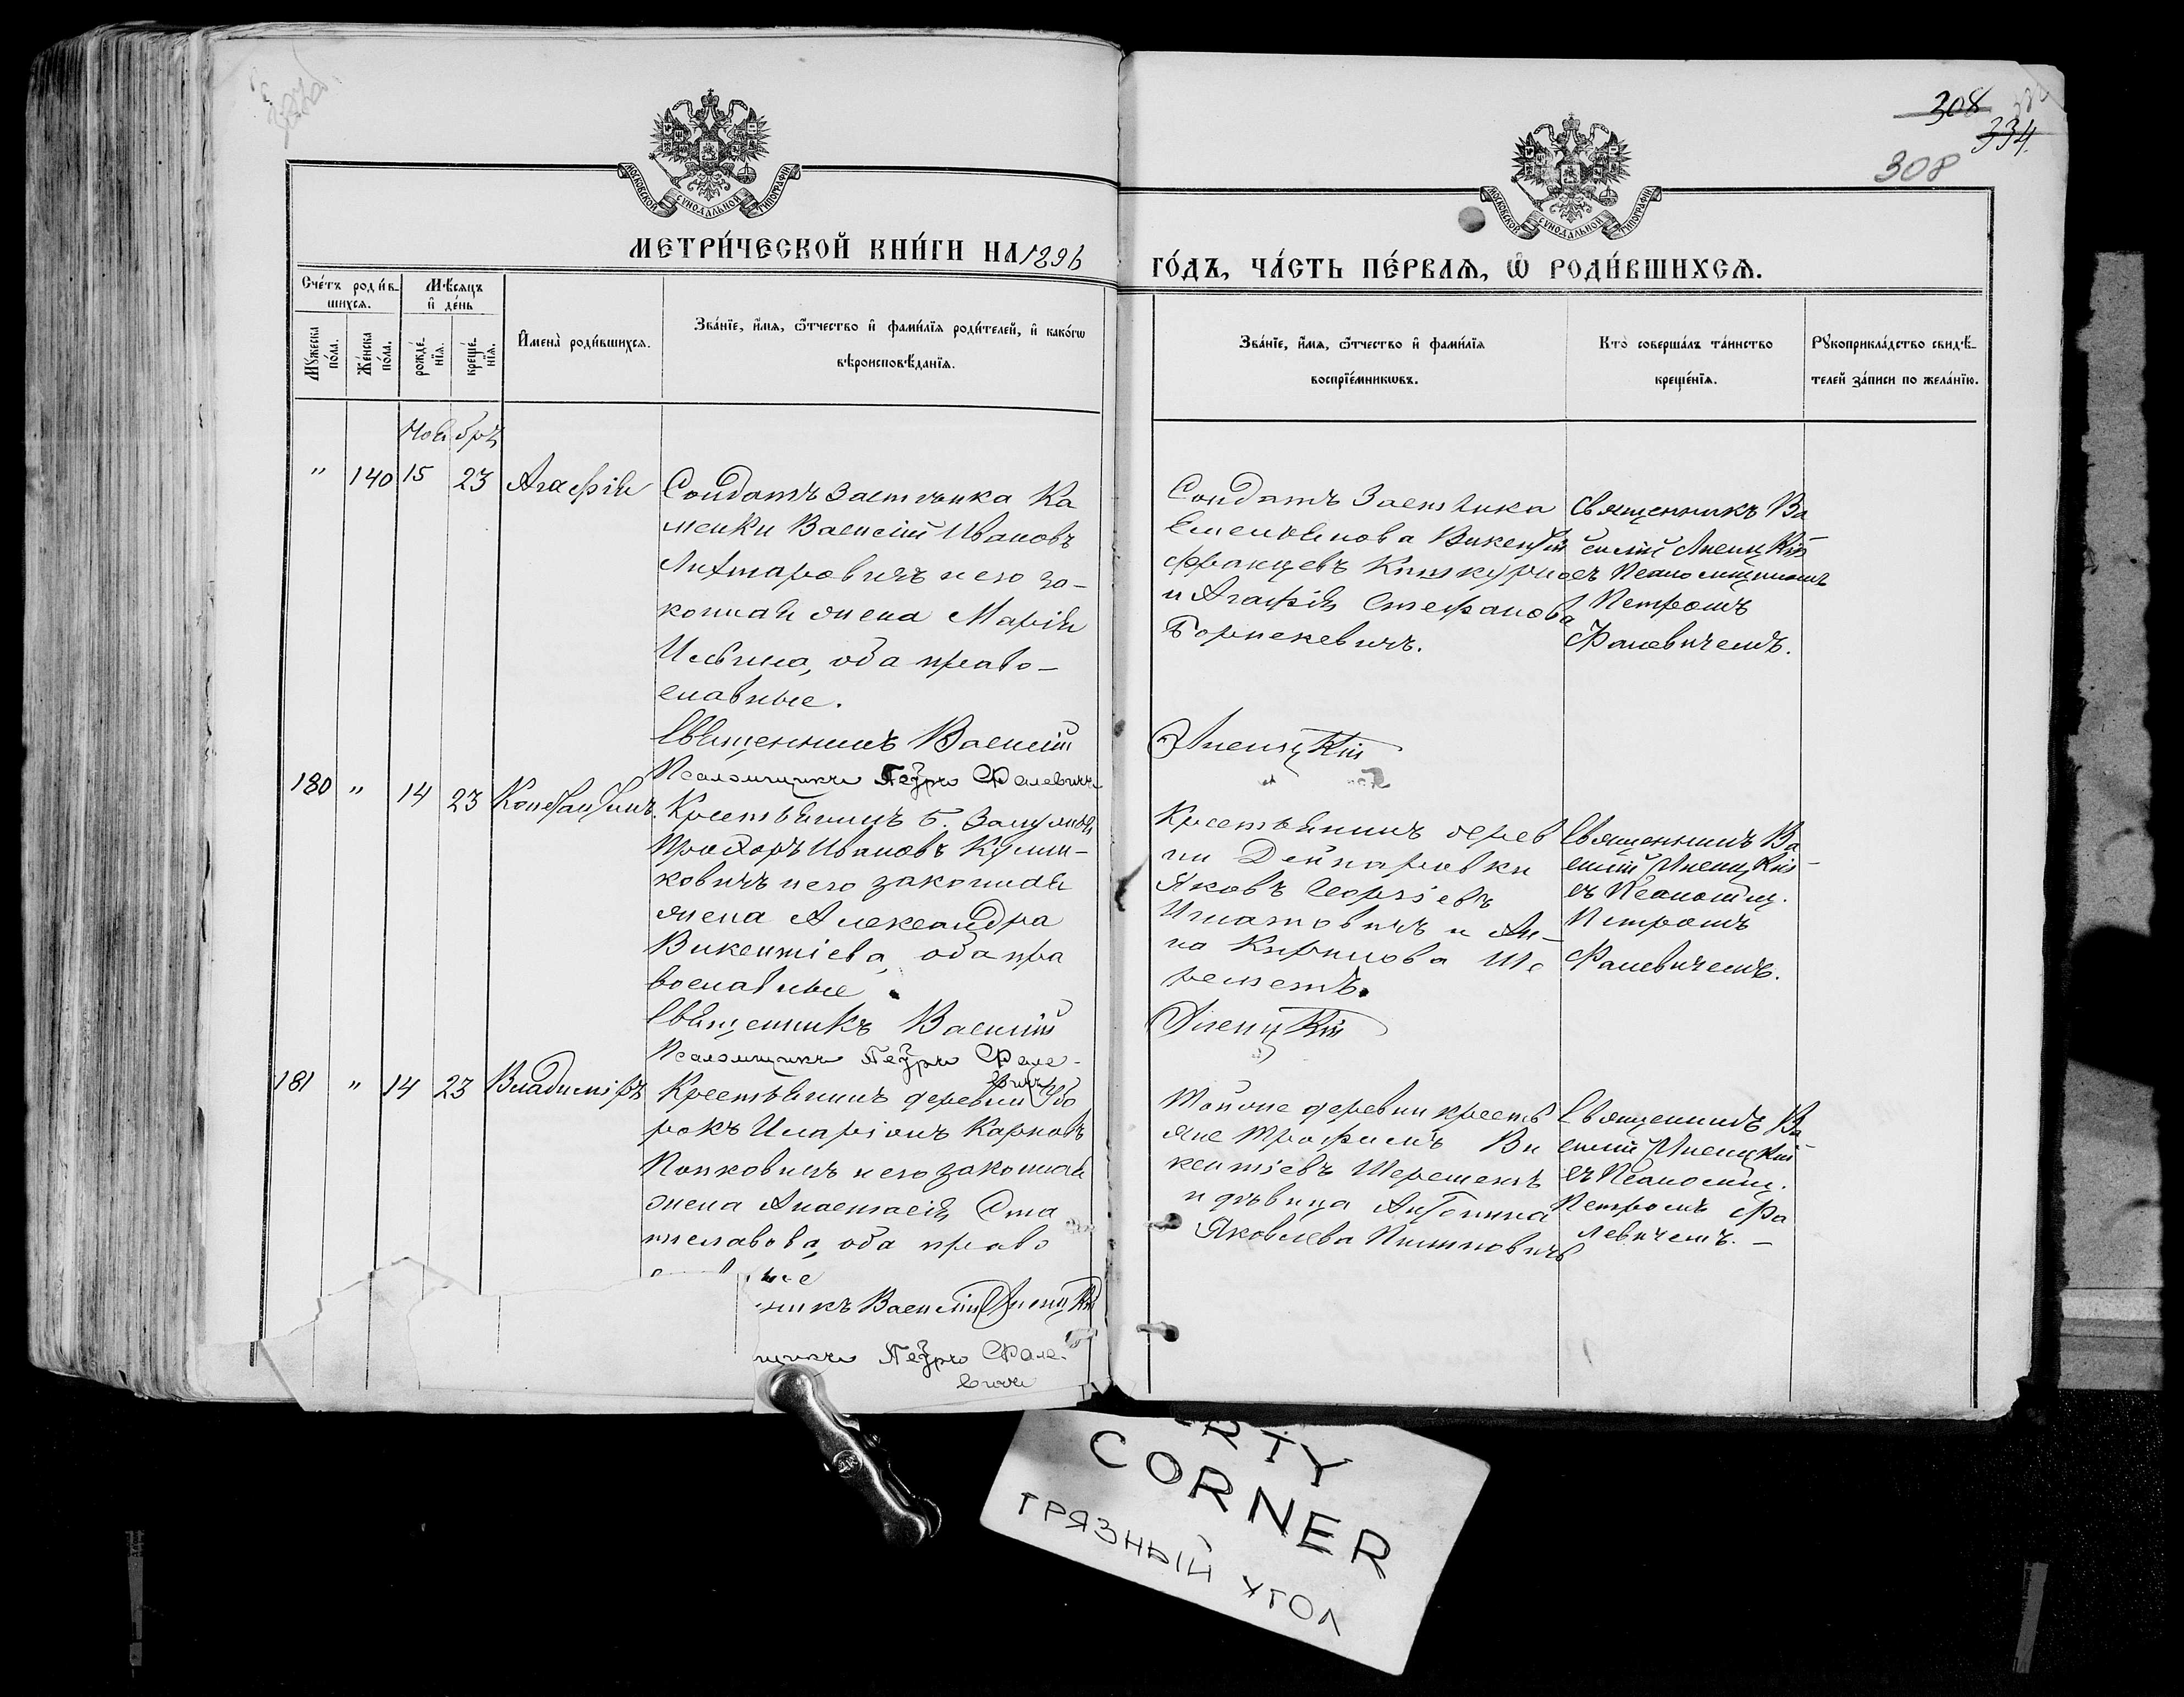 308
334
308
МОСКОВСКОЙ СѴНОДАЛЬНОЙ ТИПОГРАФІИ
МОСКОВСКОЙ СѴНОДАЛЬНОЙ ТИПОГРАФІИ
МЕТРИ́ЧЕСКОЙ КНИ́ГИ НА 1896
ГО́ДЪ, ЧА́СТЬ ПЕ́РВАЯ, Ѽ РОДИ́ВШИХСЯ.
Сче́тъ роди́в-
шихся.
Мѣ́сяцъ
и҆ де́нь
Мꙋ́жеска
по́ла.
Же́нска
по́ла.
рожде́-
нїя.
креще́-
нїя.
И҆мена̀ роди́вшихся.
Зва́нїе, и҆́мя, ѻ҆́тчество и҆ фами́лїя роди́телей, и҆ како́гѡ
вѣроисповѣ́данїя.
Зва́нїе, и҆́мя, ѻ҆́тчество и҆ фами́лїя
воспрїе́мникѡвъ.
Кто̀ соверша́лъ та́инство
креще́нїя.
Рꙋкоприкла́дство свидѣ́-
телей за́писи по жела́нїю.
Ноябрь
" 140 15 23 Агафія
Солдатъ застѣнка Ка
менки Василій Ивановъ
Лихтаровичъ и его за-
конная жена Марія
Ильина, оба право-
славные.
Священникъ Василій
Псаломщикъ Петръ Фалевичъ
Солдатъ застѣнка
Емельянова Викентій
Францевъ
и Агафія Стефанова
Священникъ Ва
силій
съ Псаломщикомъ
Петромъ
Фалевичемъ.
180 " 14 23 Константинъ.
Крестьянинъ б.
Прохоръ Ивановъ
ковичъ и его законная
жена Александра
Викентіева, оба пра
вославные
Священникъ Василій
Псаломщикъ Петръ Фале-
вичъ
Крестьянинъ дерев
ни
Яковъ Георгіевъ
Игнатовичъ и Ан-
на Кирилова Ше
реметъ.
Священникъ Ва
силій
съ Псаломщ.
Петромъ
Фалевичемъ.
181 " 14 23 Владиміръ
Крестьянинъ деревни Убо
рокъ Иларіонъ Карповъ
Попковичъ и его законная
жена Анастасія Ста
ниславова, оба право
ные
никъ Василій
щикъ Петръ Фале-
вичъ
Тойоже деревни кресть
яне Трофимъ Ви
кентіевъ Шереметъ
и дѣвица Антонина
Яковлева
Священникъ Ва
силій
съ Псаломщ.
Петромъ Фа
левичемъ. —
RTY
CORNER
ГРЯЗНЫЙ УГОЛ